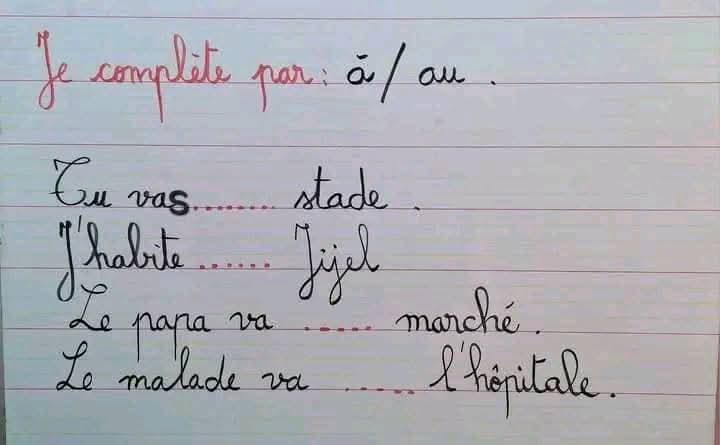 Je complète par: à / au .
Tu vas........ stade .
J'habite ...... Jijel
Le papa va ..... marché .
Le malade va ..... l'hôpitale .